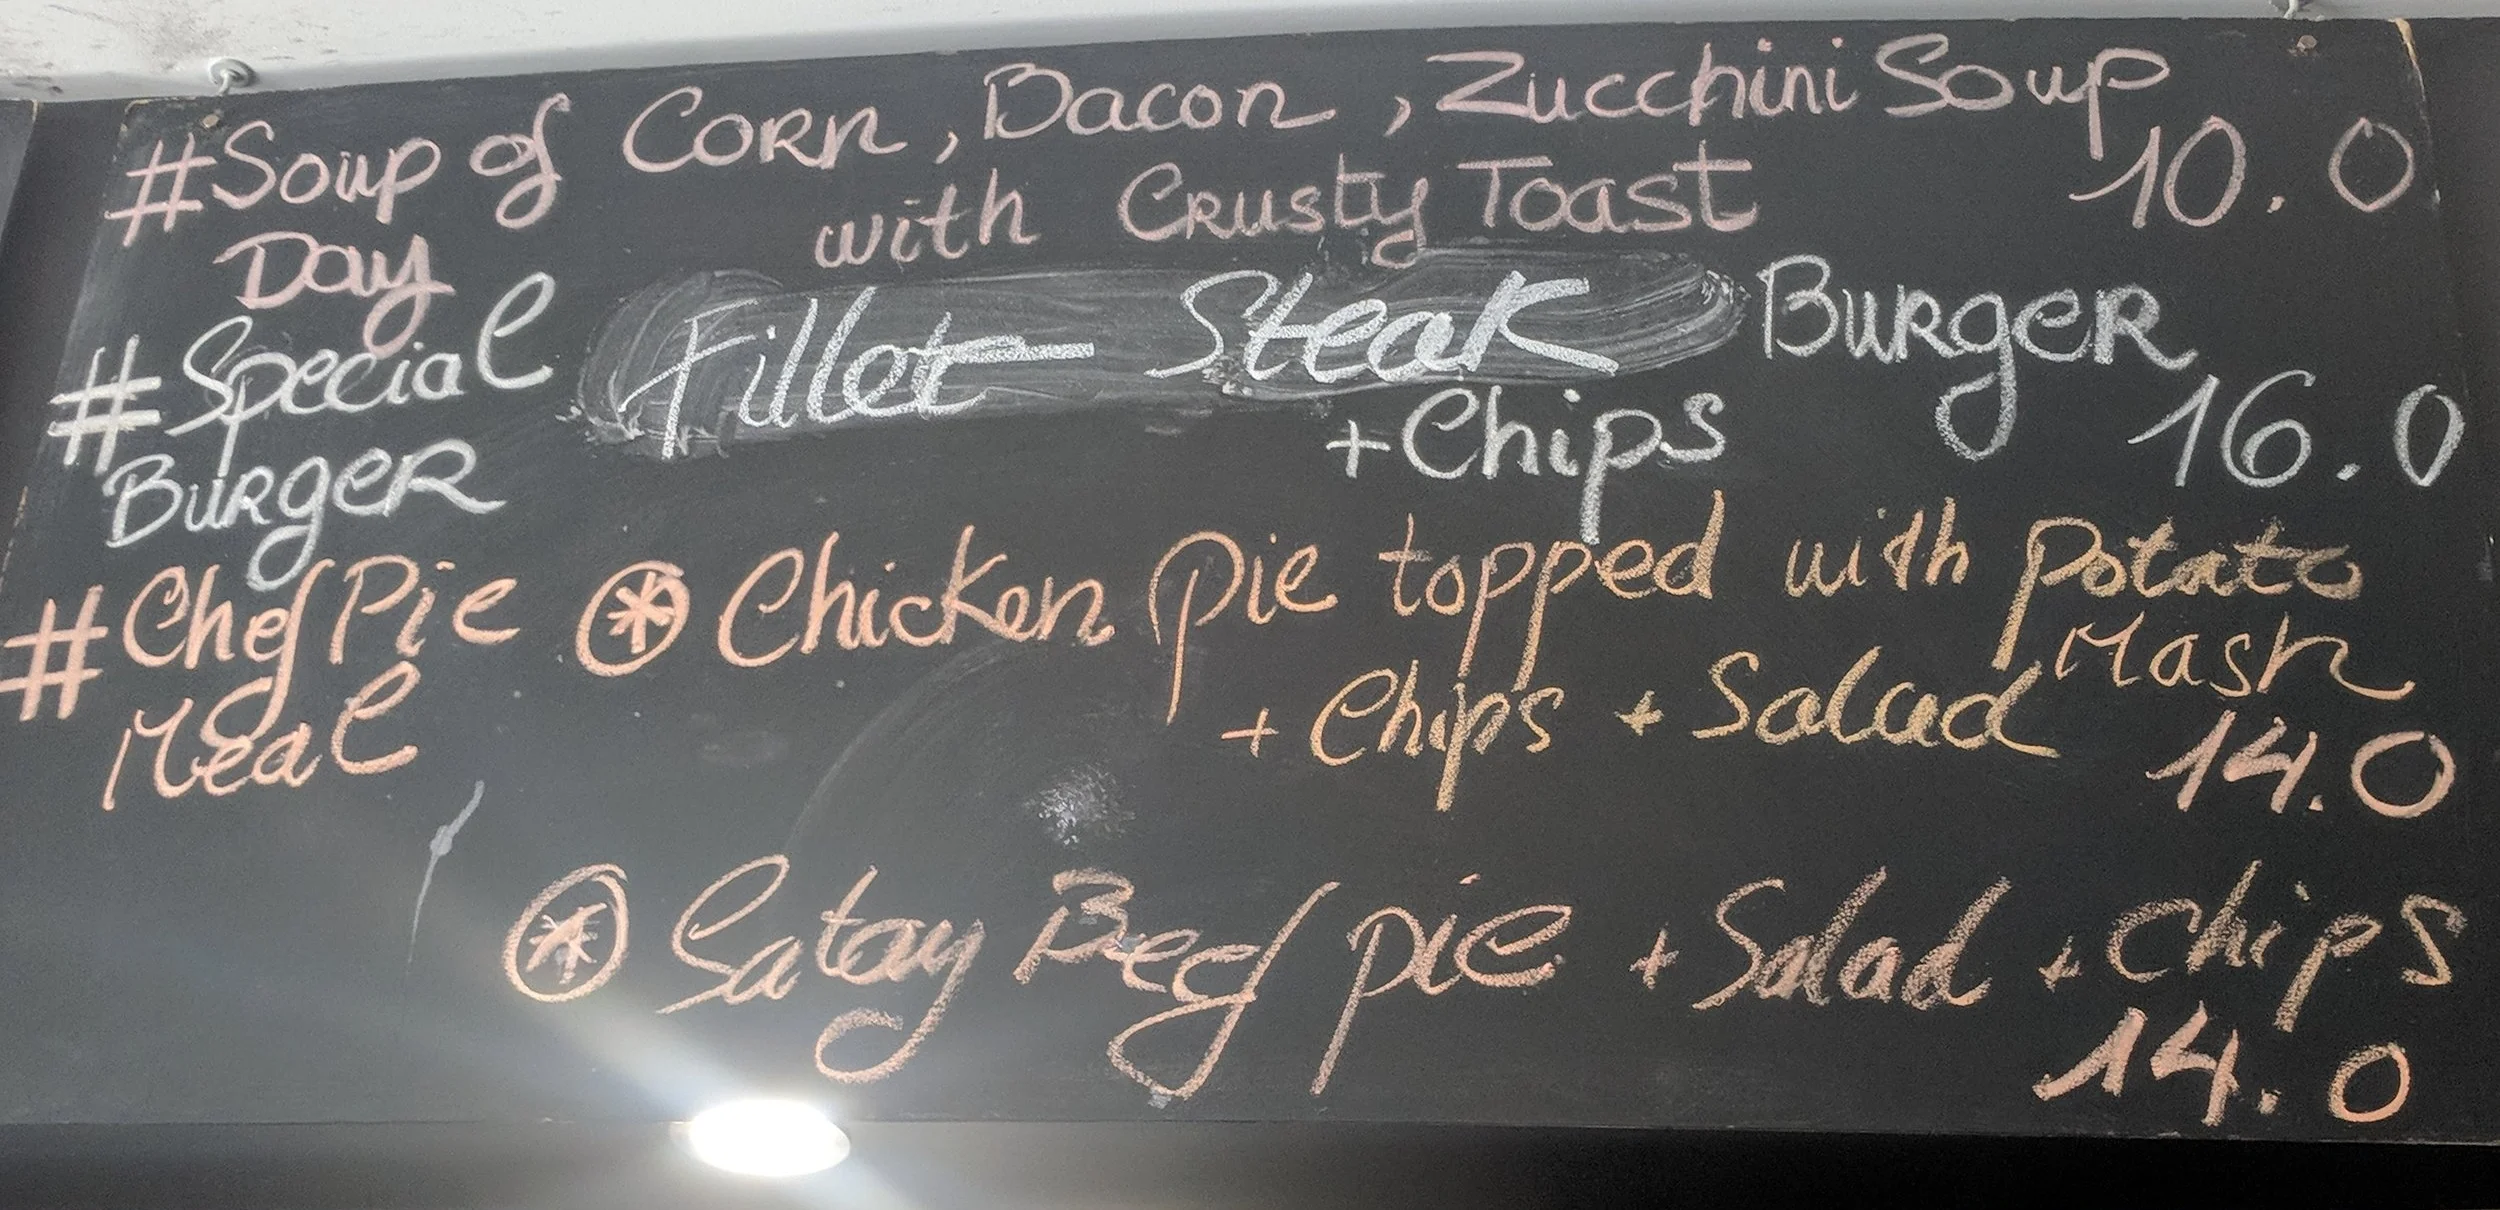 #Soup of Corn, Bacon, Zucchini Soup
Day with Crusty Toast 10.0
#Special Fillet Steak Burger
Burger +Chips 16.0
#Chef Pie ⊛ Chicken Pie topped with Potato
Meal Mash
+ Chips + Salad 14.0
⊛ Satay Beef pie + Salad + Chips
14.0